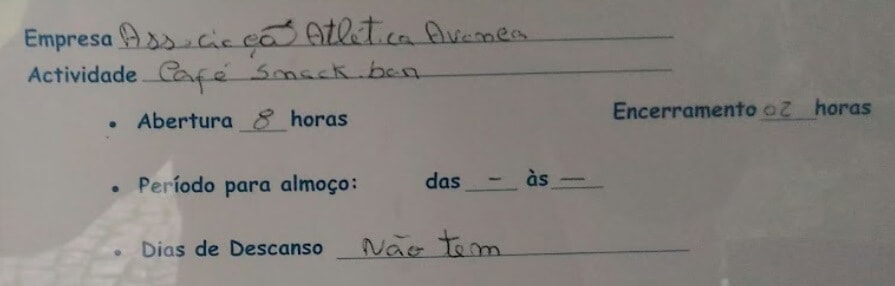 Empresa Associação Atlética Avanca
Actividade Café Smack.bar
• Abertura 8 horas Encerramento 02 horas
• Período para almoço: das - às —
• Dias de Descanso Não tem